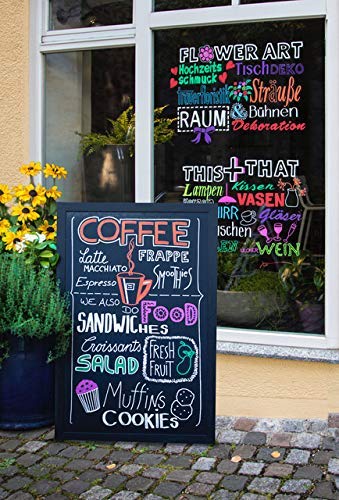 FLOWER ART
HOCHZEITS
SCHMUCK
TISCHDEKO
Trauerfloristik
Sträuße
RAUM
& Bühnen
Dekoration
THIS + THAT
Lampen
Kissen
VASEN
IRR
Gläser
schen
WEIN
COFFEE
Latte
MACCHIATO
FRAPPE
Espresso
Smoothies
WE ALSO
DO
FOOD
SANDWICHES
Croissants
SALAD
FRESH
FRUIT
Muffins
COOKIES